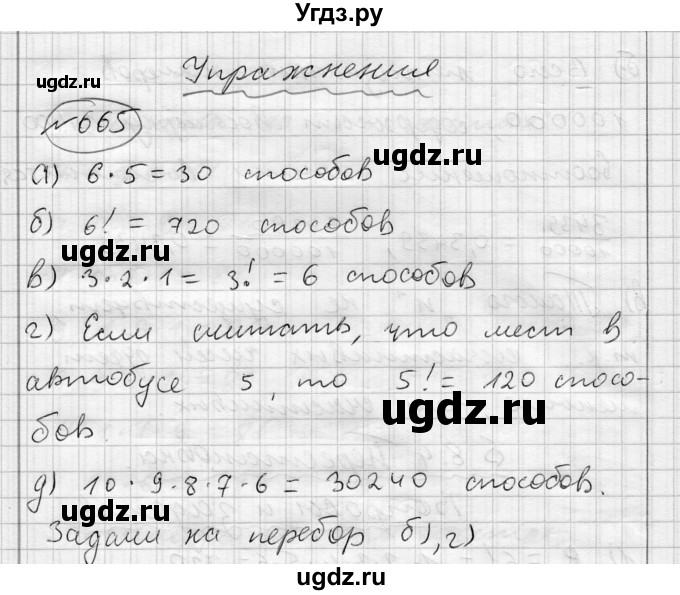 Угдз.ру
ugdz.ru
Упражнения
№665
а) 6·5=30 способов
ugdz.ru
б) 6! = 720 способов
ugdz.ru
в) 3·2·1 = 3! = 6 способов
г) Если считать, что мест в
ugdz.ru
автобусе 5, то 5! = 120 спосо-
ugdz.ru
бов.
д) 10·9·8·7·6 = 30240 способов.
ugdz.ru
Задачи на перебор б), г)
ugdz.ru